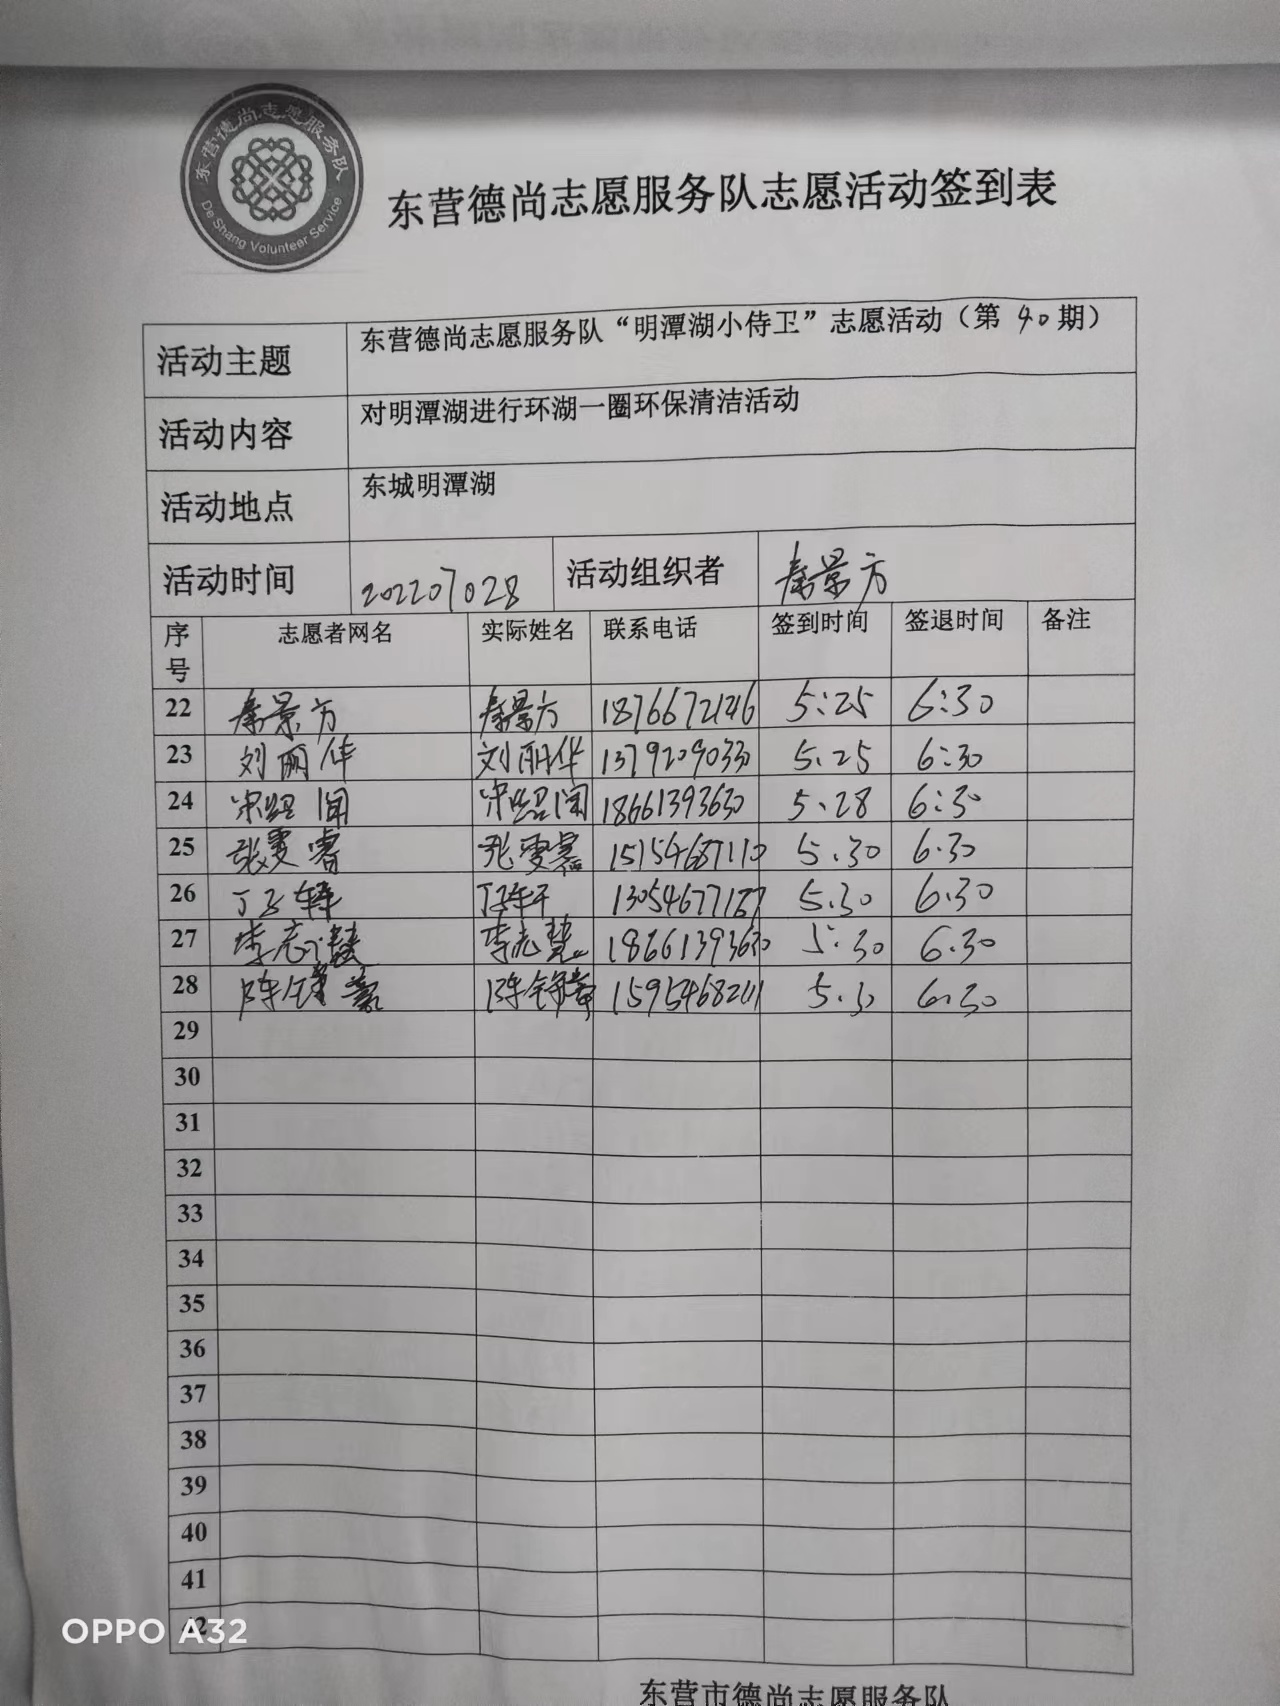 东营德尚志愿服务队
De Shang Volunteer Service
东营德尚志愿服务队志愿活动签到表
活动主题 东营德尚志愿服务队“明潭湖小侍卫”志愿活动（第40期）
活动内容 对明潭湖进行环湖一圈环保清洁活动
活动地点 东城明潭湖
活动时间 202207028 活动组织者 秦景方
序号 志愿者网名 实际姓名 联系电话 签到时间 签退时间 备注
22 秦景方 秦景方 18766721246 5:25 6:30
23 刘丽华 刘丽华 1379209033 5.25 6:30
24 18661393630 5.28 6:30
25 张雯睿 张雯睿 15154687110 5.30 6.30
26 丁子轩 丁子轩 13054677187 5.30 6.30
27 李志慧 李志慧 18661393630 5.30 6.30
28 5.30 6.30
29
30
31
32
33
34
35
36
37
38
39
40
41
42
东营市德尚志愿服务队
OPPO A32